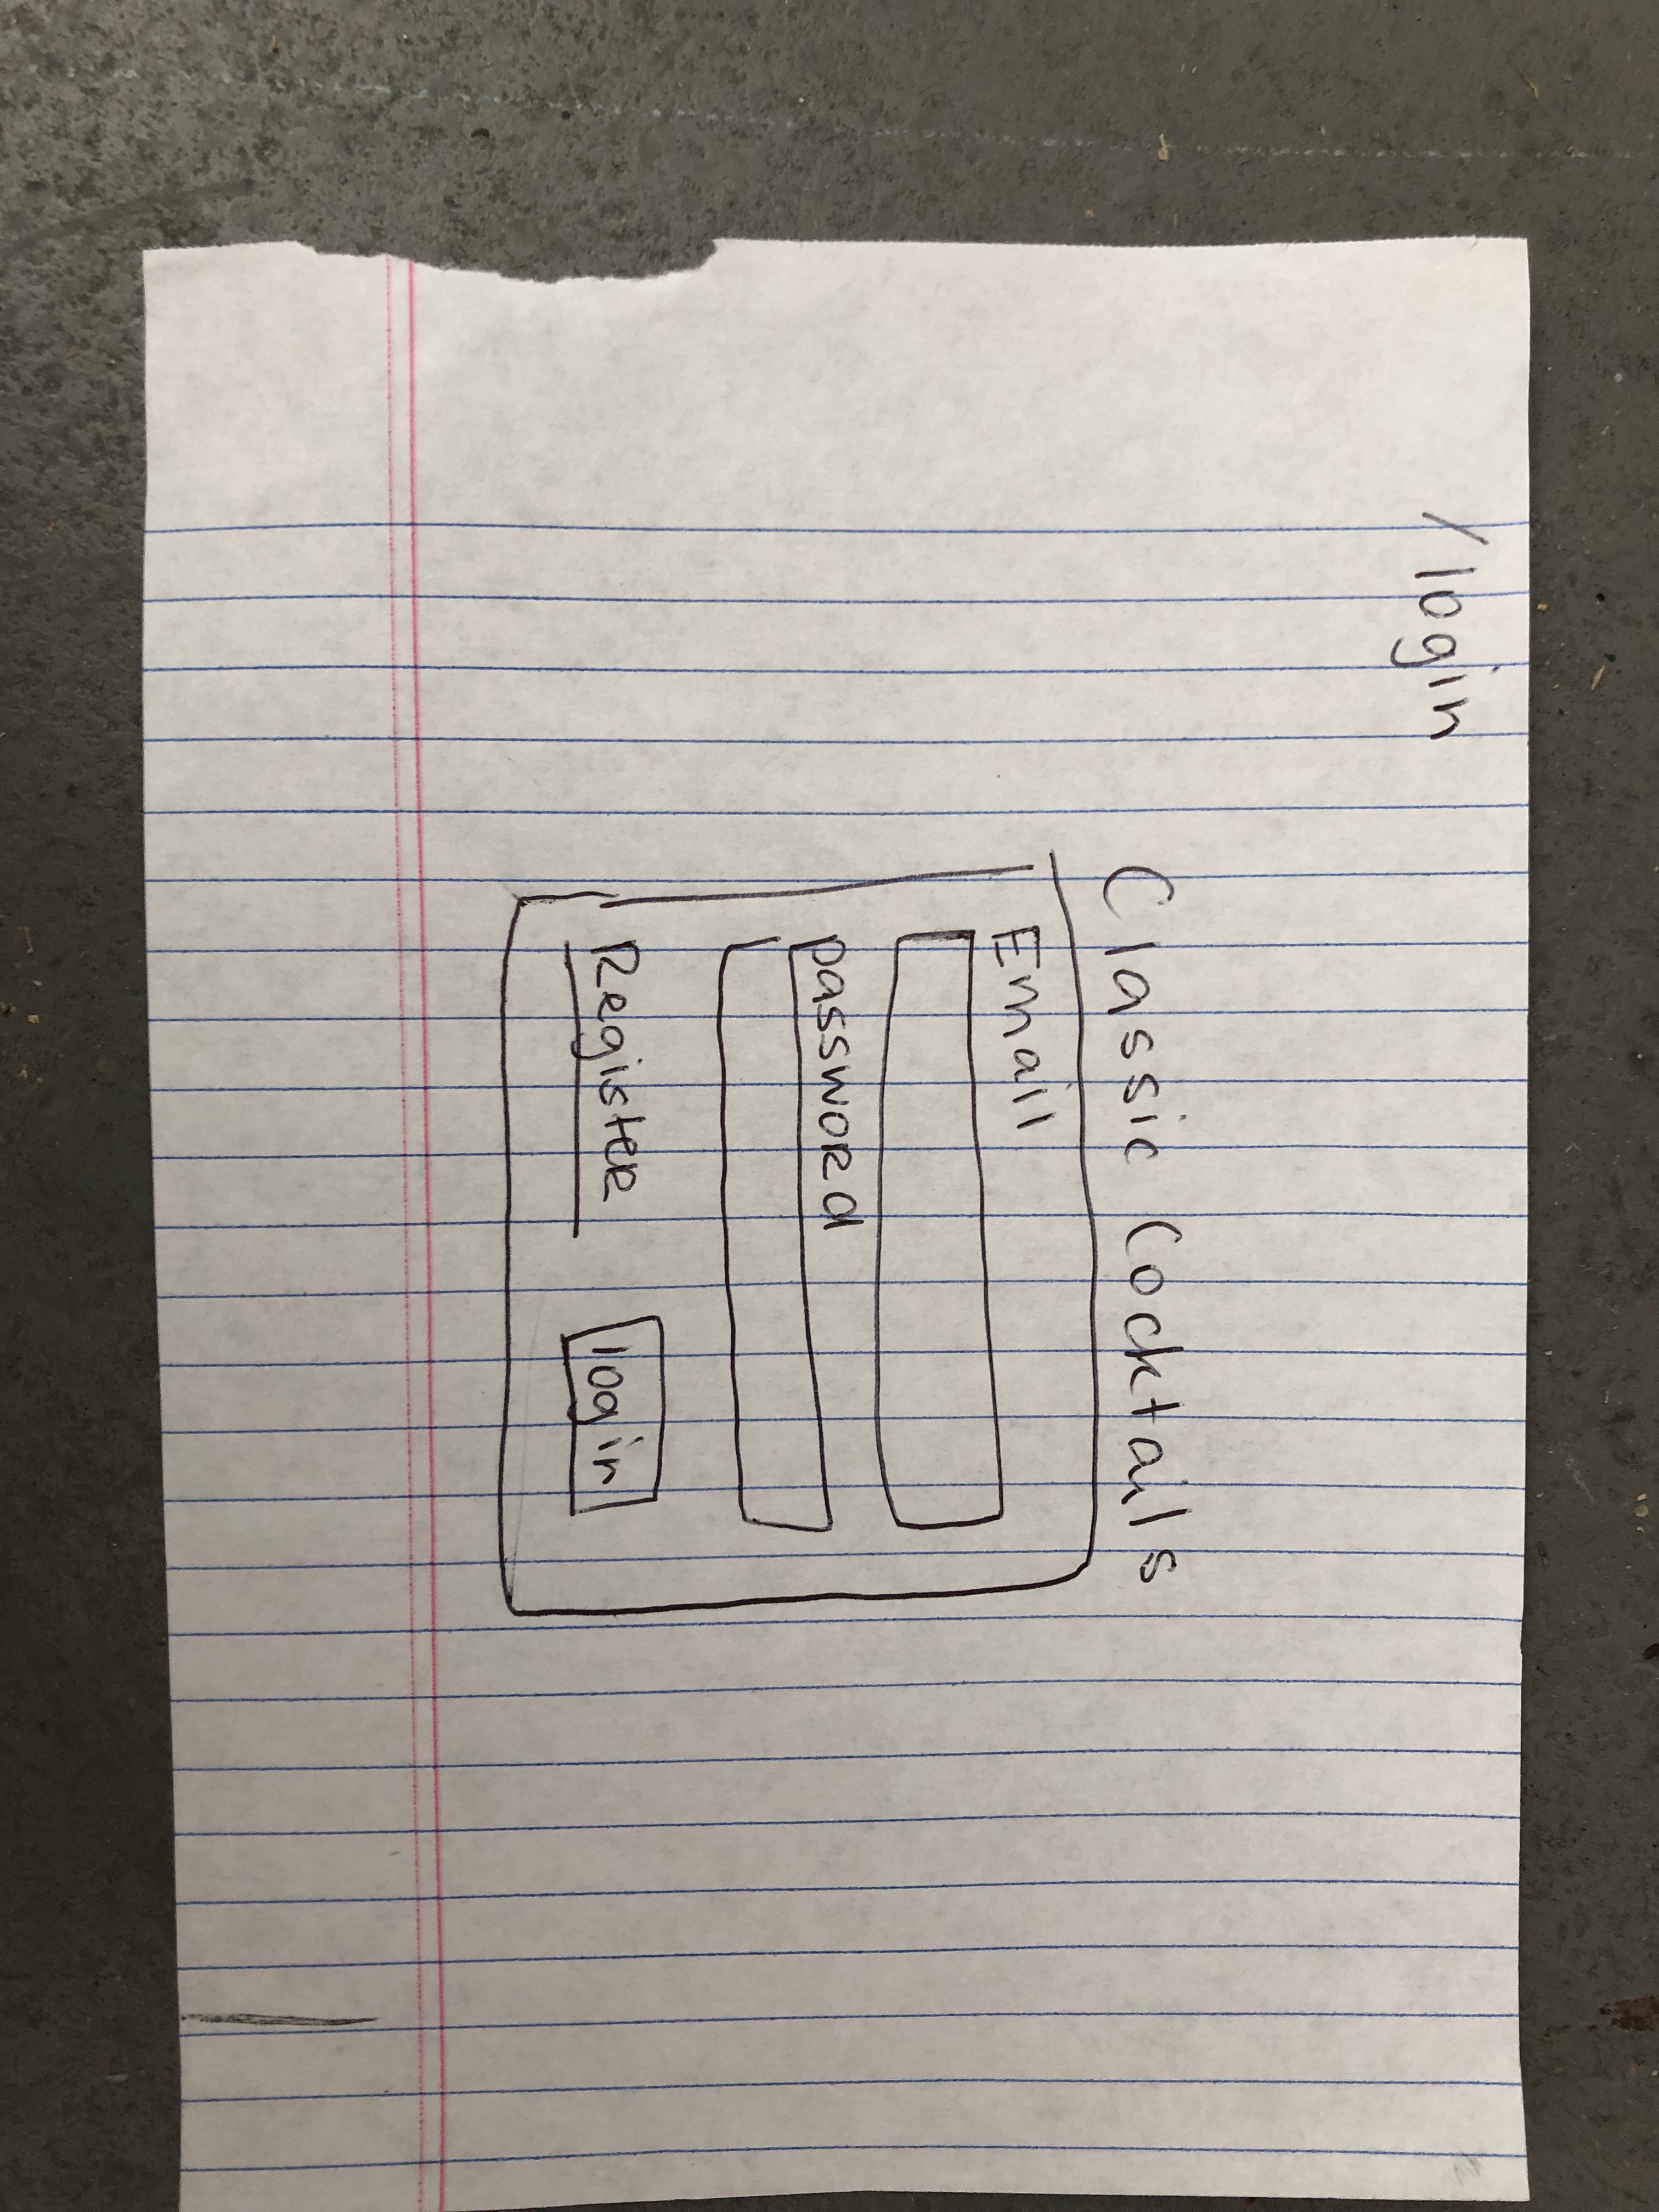 /login
Classic Cocktails
Email
password
Register
login